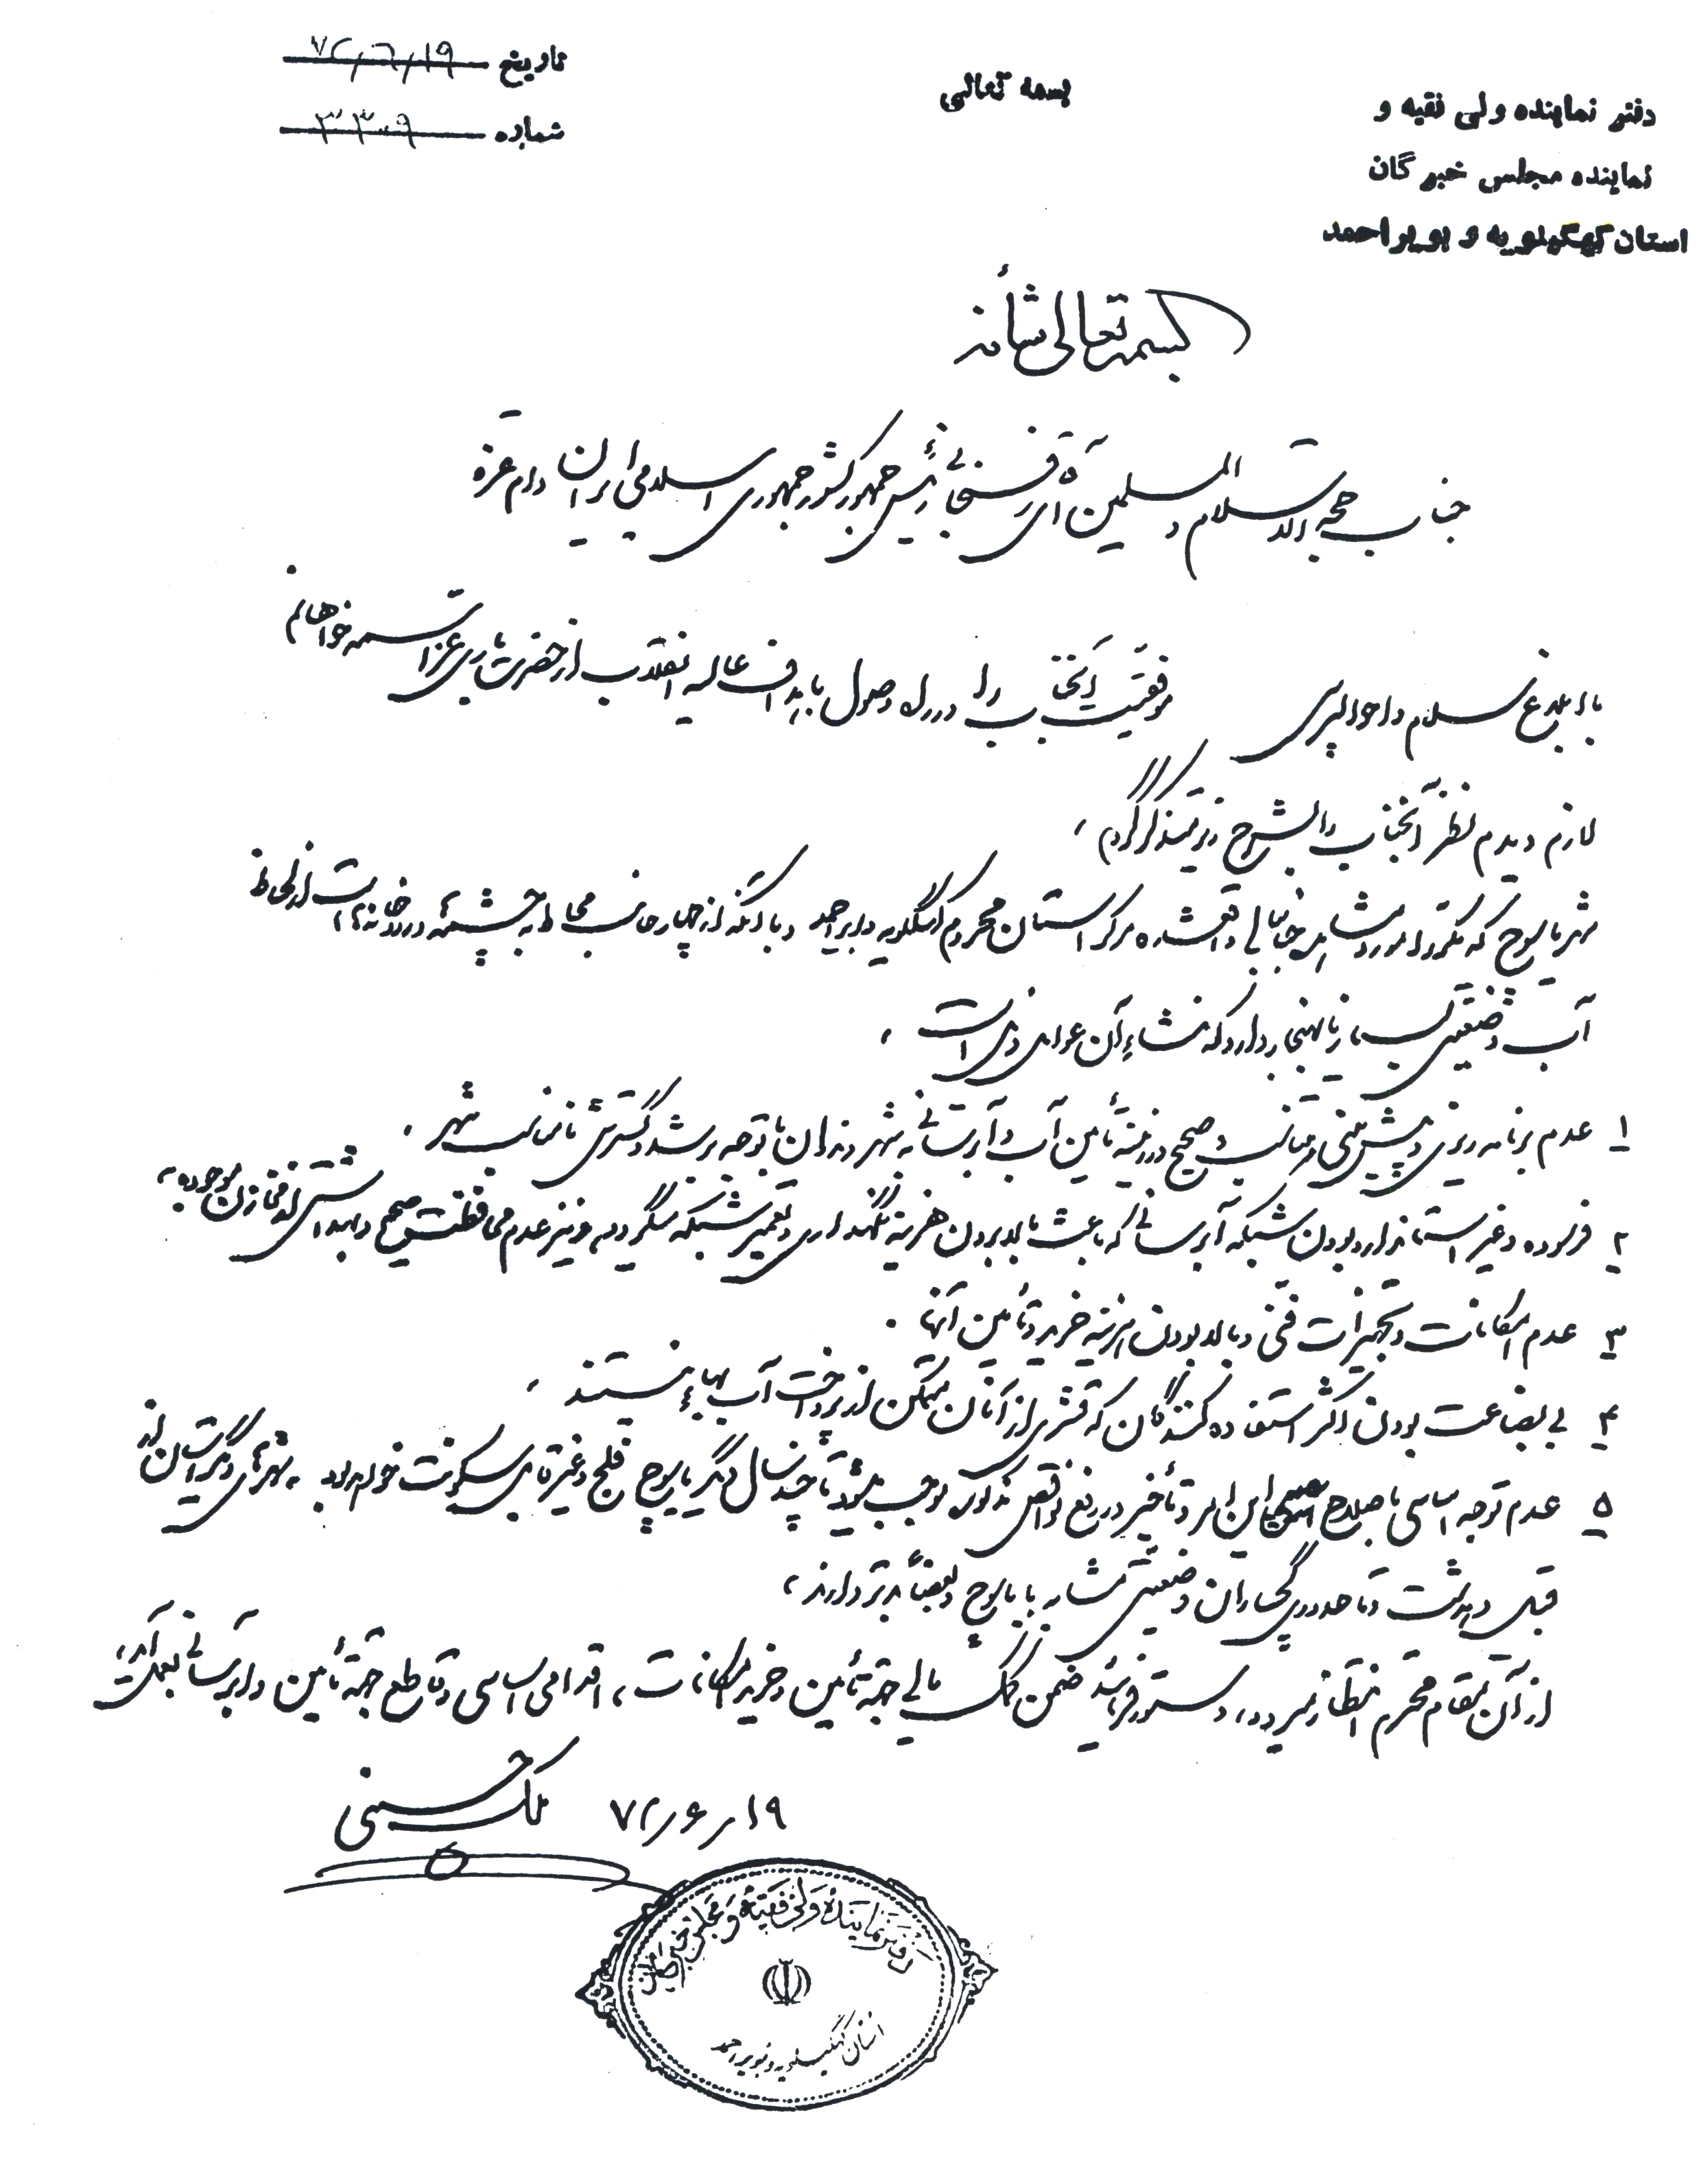 دفتر نماینده ولی فقیه و
نماینده مجلس خبرگان
استان کهگیلویه و بویراحمد
بسمه تعالی
تاریخ ۷۲/۶/۱۹
شماره ۳۳۰۹
بسمه تعالی شأنه
جناب حجة الاسلام و المسلمین آقای رفسنجانی رئیس جمهور کشور جمهوری اسلامی ایران دام عزه
با ابلاغ سلام و احوالپرسی موفقیت آنجناب را در راه وصول باهداف عالیه انقلاب از حضرت باری عز اسمه خواهانم
لازم دیدم نظر آنجناب را بشرح زیر متذکر گردم ،
شهر یاسوج که مکرر مورد مشاهده جنابعالی واقع شده مرکز استان محروم کهگیلویه و بویراحمد و با آنکه از چهار جانب محاط به چشمه و رودخانه است از لحاظ
آب وضعیتی بسیار نابهنجار دارد که منشاء آن عوامل ذیل است ،
۱ عدم برنامه ریزی و پیش بینی متناسب و صحیح در زمینه تأمین آب و آبرسانی به شهر و ندان با توجه به رشد و گسترش نامناسب شهر .
۲ فرسوده و غیر استاندارد بودن شبکه آبرسانی که باعث بالا بردن هزینه نگهداری و تعمیر شبکه میگردد و نیز عدم محافظت صحیح و بهداشتی از مخازن موجوده ،
۳ عدم امکانات و تجهیزات فنی و بالا بودن هزینه خرید و تأمین آنها .
۴ بی بضاعت بودن اکثر استفاده کنندگان که قشری از آنان متمکن از پرداخت آب بهاء نیستند ،
۵ عدم توجه اساسی باصلاح این امر و تأخیر در رفع نواقص مذکور موجب میشود تا چند سال دیگر یاسوج فلج و غیر قابل سکونت خواهد بود شهرهای دیگر استان از
قبیل دهدشت و تا حدودی گچساران وضعیتی مشابه با یاسوج و بعضاً بدتر دارند ،
از آن مقام محترم انتظار میرود ، دستور فرمائید ضمن کمک مالی جهة تأمین و خرید امکانات ، اقدامی اساسی و قاطع جهة تأمین و آبرسانی بعمل آید ،
۷۲/۶/۱۹ ملک حسینی
دفتر نماینده ولی فقیه و مجلس خبرگان
استان کهگیلویه و بویراحمد